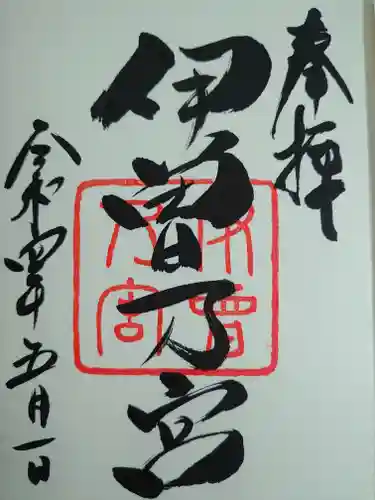 奉拝
伊曽乃宮
伊曽乃宮
令和四年五月一日